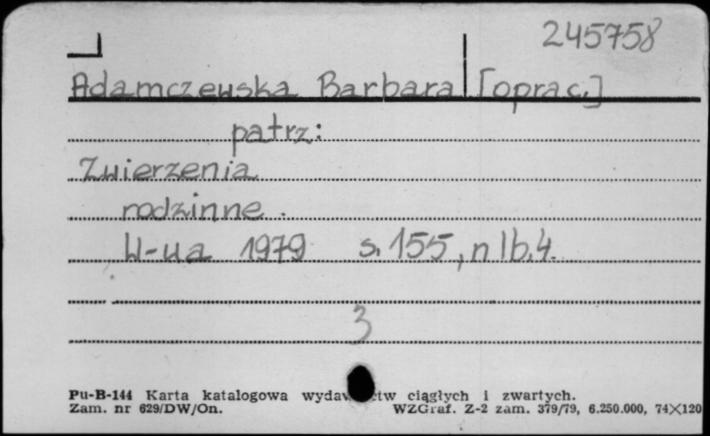 245758
Adamczewska Barbara [oprac.]
patrz:
Zwierzenia
rodzinne.
W-wa 1979 s. 155, nlb. 4.
3
Pu-B-144 Karta katalogowa wydawnictw ciągłych i zwartych.
Zam. nr 629/DW/On. WZGraf. Z-2 zam. 379/79, 6.250.000, 74×120